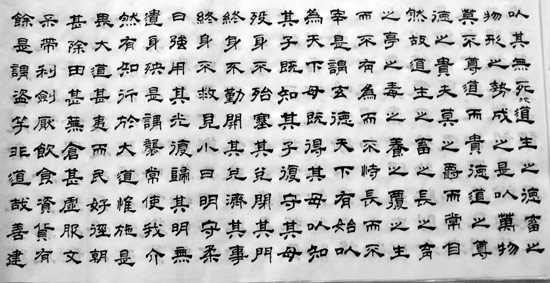 以其無死地道生之德畜之
物形之勢成之是以萬物
莫不尊道而貴德道之尊
德之貴夫莫之爵而常自
然故道生之畜之長之育
之亭之毒之養之覆之生
而不有為而不恃長而不
宰是謂玄德天下有始以
為天下母既得其母以知
其子既知其子復守其母
没身不殆塞其兌閉其門
終身不勤開其兌濟其事
終身不救見小曰明守柔
曰強用其光復歸其明無
遺身殃是謂襲常使我介
然有知行於大道惟施是
畏大道甚夷而民好徑朝
甚除田甚蕪倉甚虛服文
采帶利劍厭飲食資貨有
餘是謂盗竽非道故善建